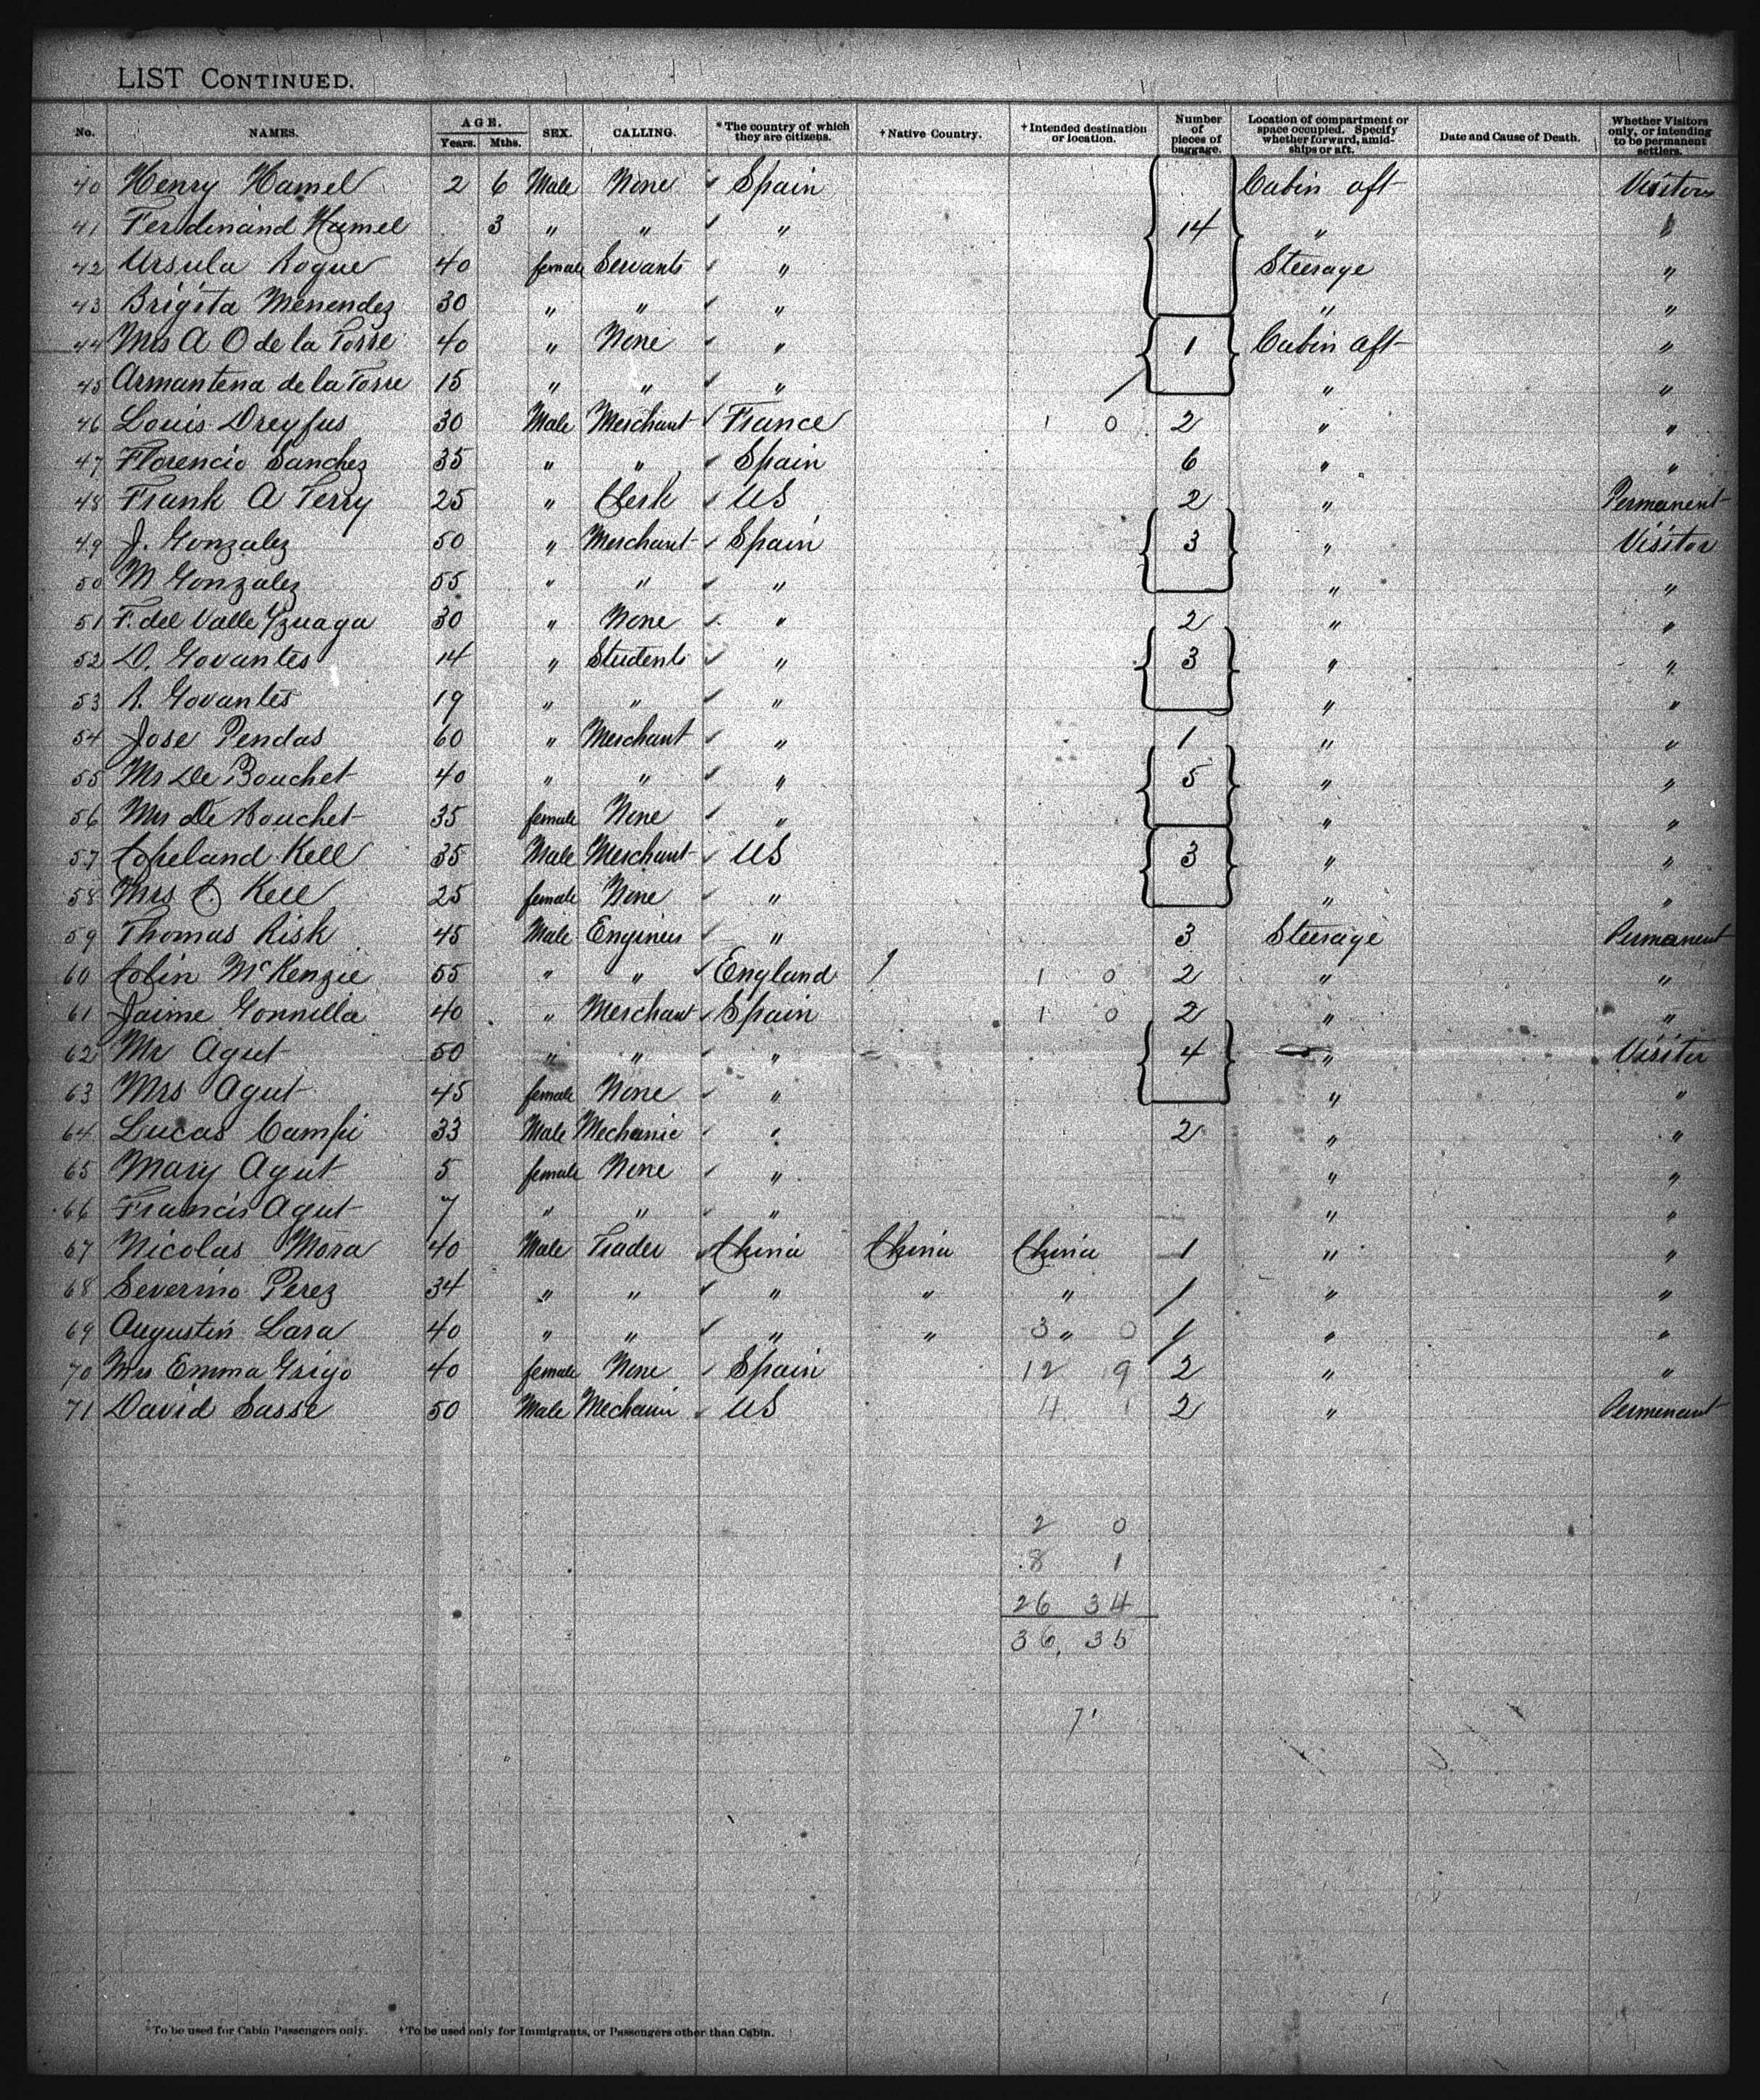 LIST CONTINUED.
No. NAMES. AGE. Years. Mths. SEX. CALLING. *The country of which they are citizens. †Native Country. †Intended destination or location. Number of pieces of baggage. Location of compartment or space occupied. Specify whether forward, amidships or aft. Date and Cause of Death. Whether Visitors only, or intending to be permanent settlers.
40 Henry Hamel 2 6 Male None ✓ Spain Cabin aft Visitors
41 Ferdinand Hamel 3 " " ✓ " 14 " "
42 Ursula Rogue 40 female Servants ✓ " Steerage "
43 Brigita Menendez 30 " " ✓ " " "
44 Mrs A O de la Torre 40 " None ✓ " 1 Cabin aft "
45 Armantena de la Torre 15 " " ✓ " " "
46 Louis Dreyfus 30 Male Merchant ✓ France 1 0 2 " "
47 Florencio Sanchez 35 " " ✓ Spain 6 " "
48 Frank A Terry 25 " Clerk ✓ US 2 " Permanent
49 J. Gonzalez 50 " Merchant ✓ Spain 3 " Visitor
50 M Gonzalez 55 " " ✓ " " "
51 F. del Valle Yzuaga 30 " None ✓ " 2 " "
52 D. Govantes 14 " Students ✓ " 3 " "
53 A. Govantes 19 " " ✓ " " "
54 Jose Pendas 60 " Merchant ✓ " 1 " "
55 Mr De Bouchet 40 " " ✓ " 5 " "
56 Mrs De Bouchet 35 female None ✓ " " "
57 Copeland Kell 35 Male Merchant ✓ US 3 " "
58 Mrs C. Kell 25 female None ✓ " " "
59 Thomas Risk 45 Male Engineer ✓ " 3 Steerage Permanent
60 Colin McKenzie 55 " " ✓ England / 1 0 2 " "
61 Jaime Gonnilla 40 " Merchant ✓ Spain 1 0 2 " "
62 Mr Agut 50 " " ✓ " 4 " Visitor
63 Mrs Agut 45 female None ✓ " " "
64 Lucas Campi 33 Male Mechanic ✓ " 2 " "
65 Mary Agut 5 female None ✓ " " "
66 Francis Agut 7 " " ✓ " " "
67 Nicolas Mora 40 Male Trader ✓ China China China 1 " "
68 Severino Perez 34 " " ✓ " " " 1 " "
69 Augustin Lara 40 " " ✓ " " 3 " 0 1 " "
70 Mrs Emma Grigo 40 female None ✓ Spain 12 19 2 " "
71 David Sasse 50 Male Mechanic ✓ US 4 1 2 " Permenant
2 0
8 1
26 34
36 35
71
*To be used for Cabin Passengers only. †To be used only for Immigrants, or Passengers other than Cabin.